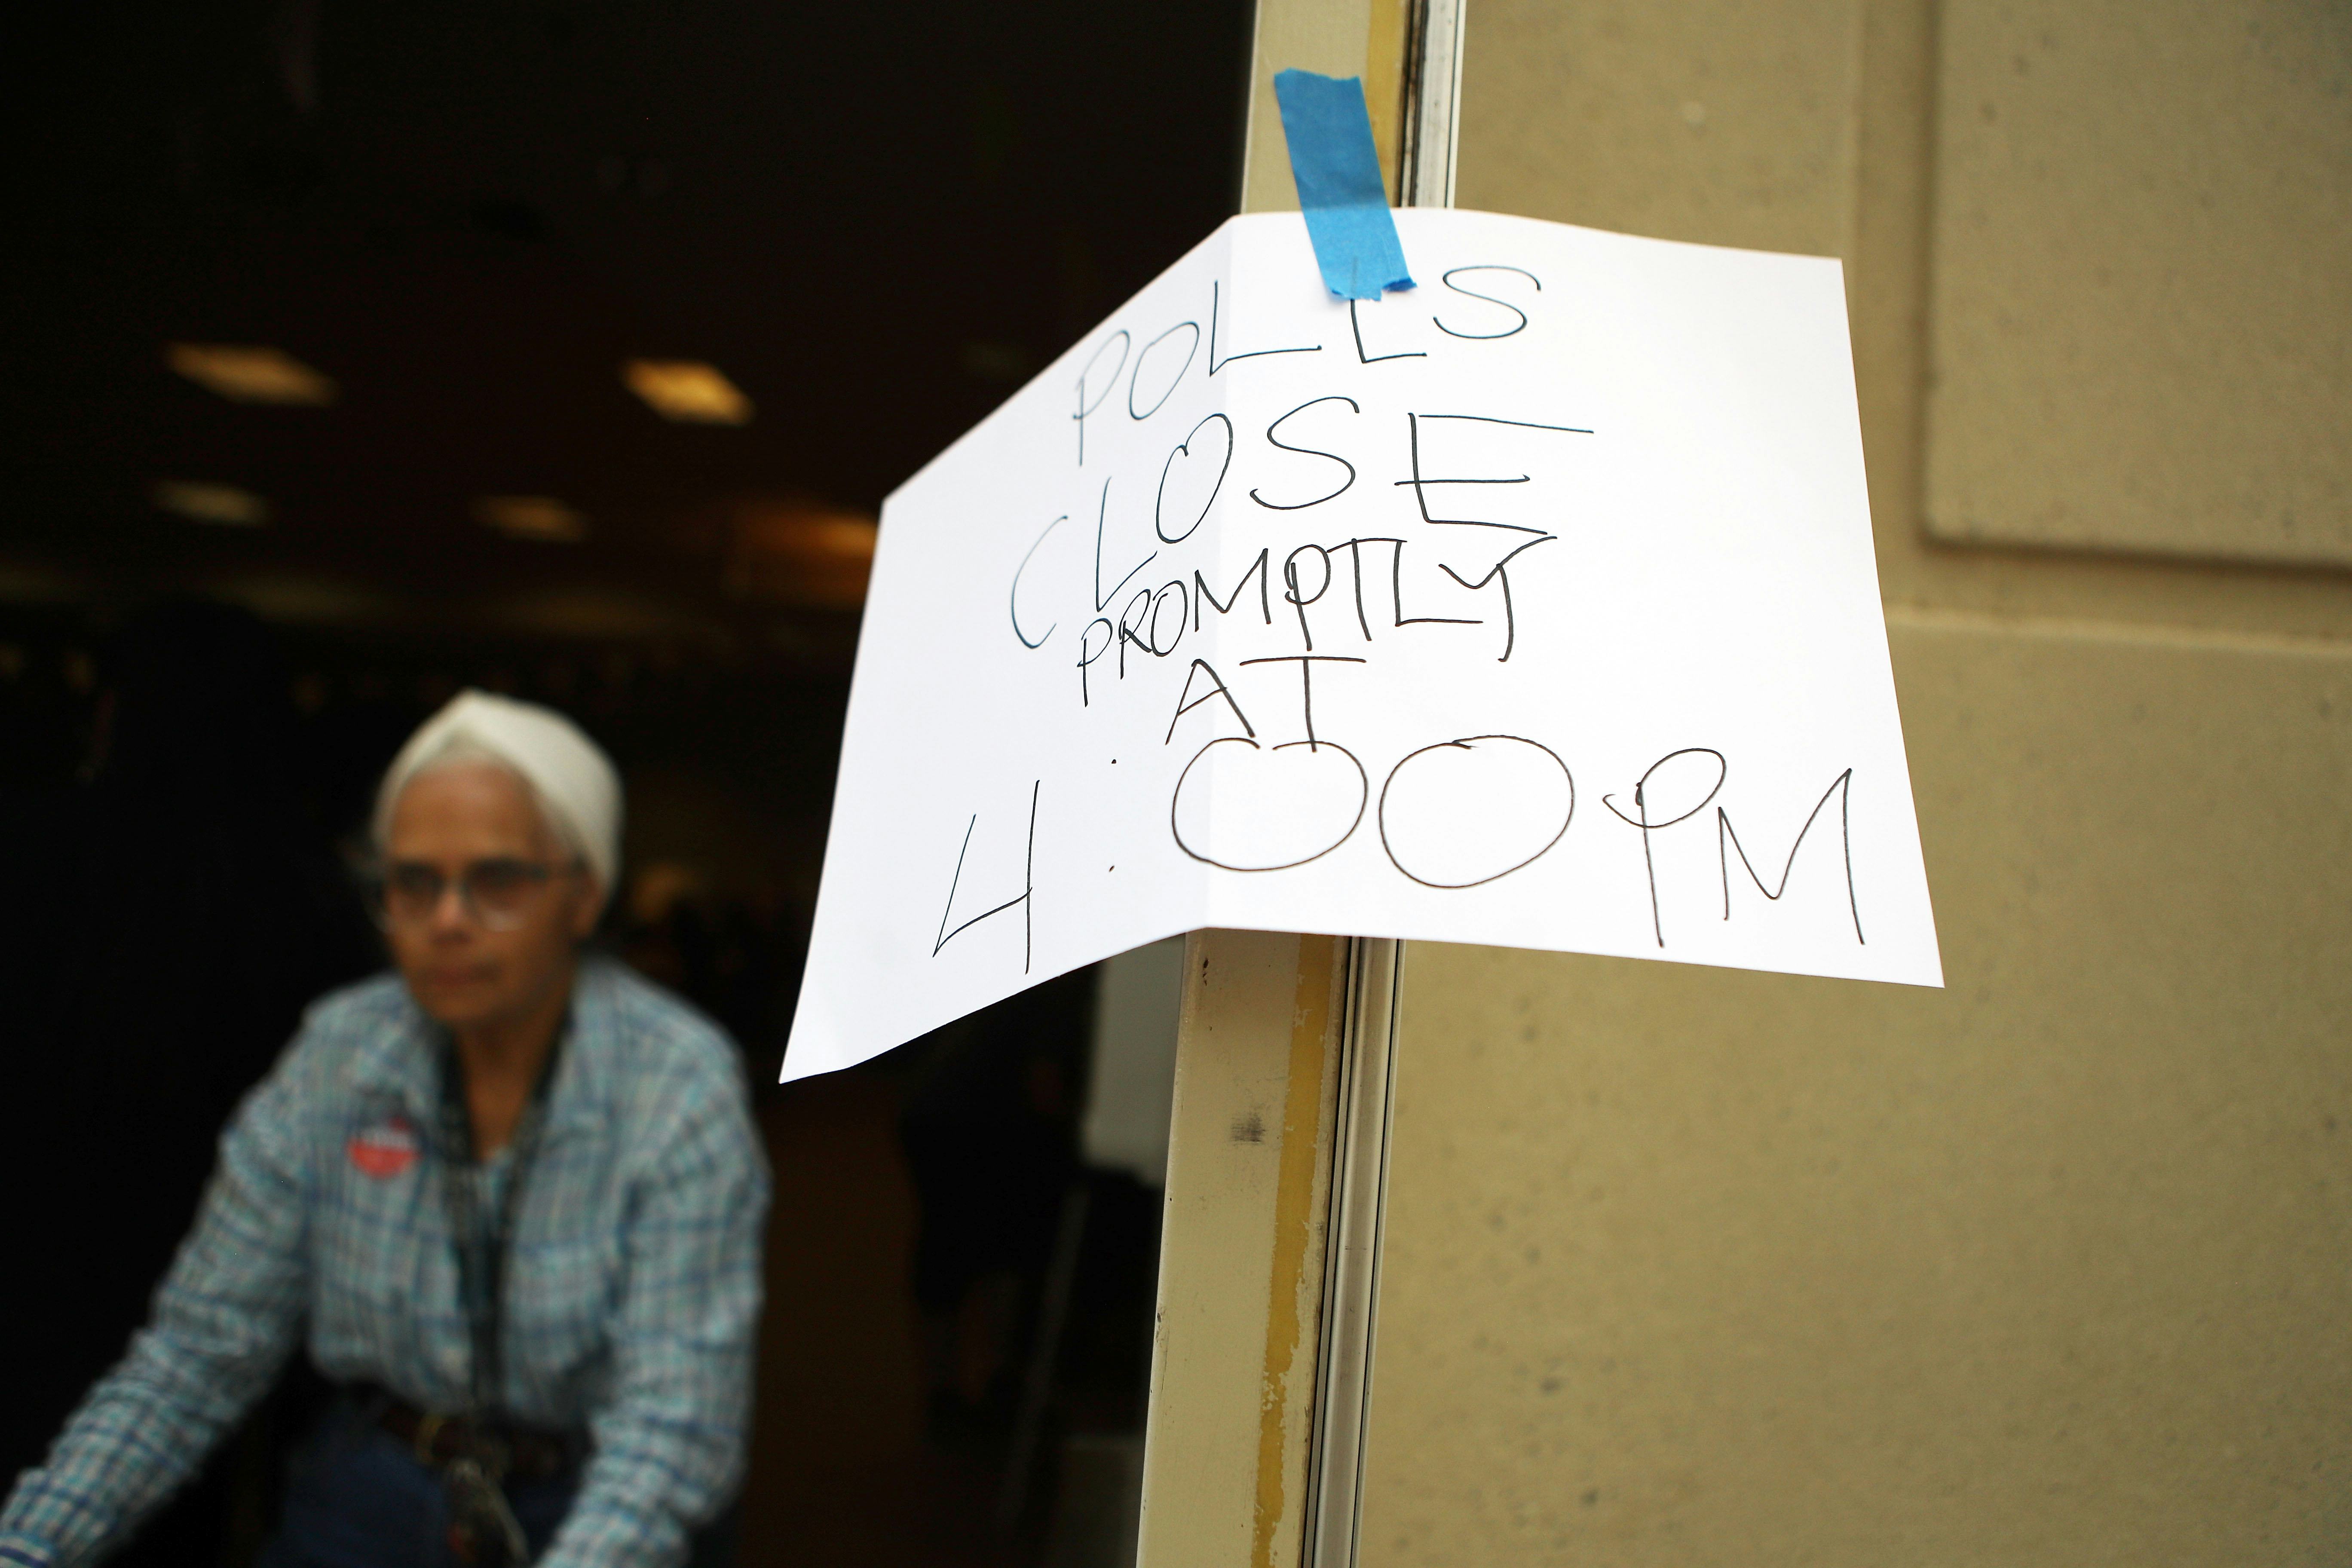 POLLS
CLOSE
PROMPTLY
AT
4:00PM